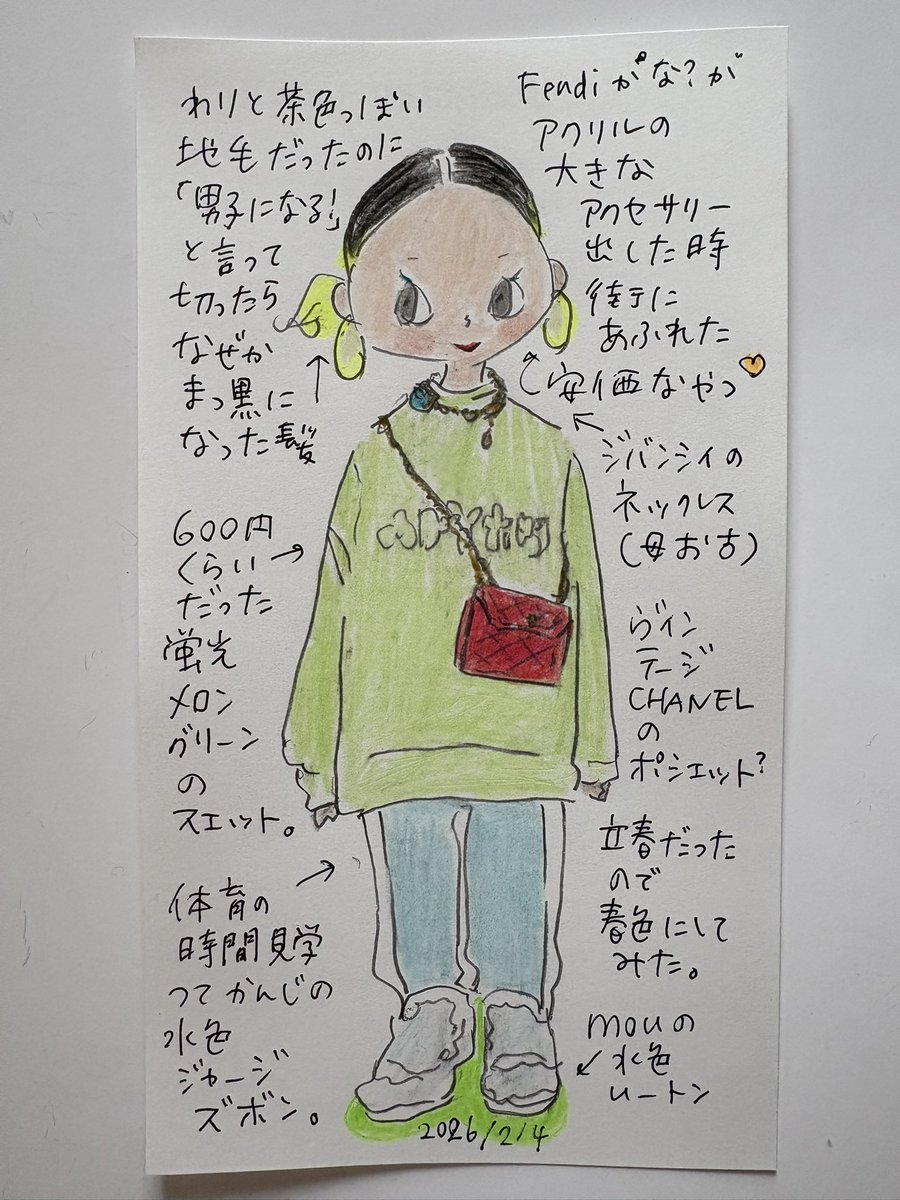 わりと茶色っぽい
地毛だったのに
「男子になる!」
と言って
切ったら
なぜか
まっ黒に
なった髪
600円
くらい
だった
蛍光
メロン
グリーン
の
スエット。
体育の
時間見学
つてかんじの
水色
ジャージ
ズボン。
Fendiかな?が
アクリルの
大きな
アクセサリー
出した時
街に
あふれた
安価なやつ
ジバンシイの
ネックレス
(母お古)
ヴィン
テージ
CHANEL
の
ポシェット?
立春だった
ので
春色にして
みた。
mouの
水色
ムートン
2026/2/4